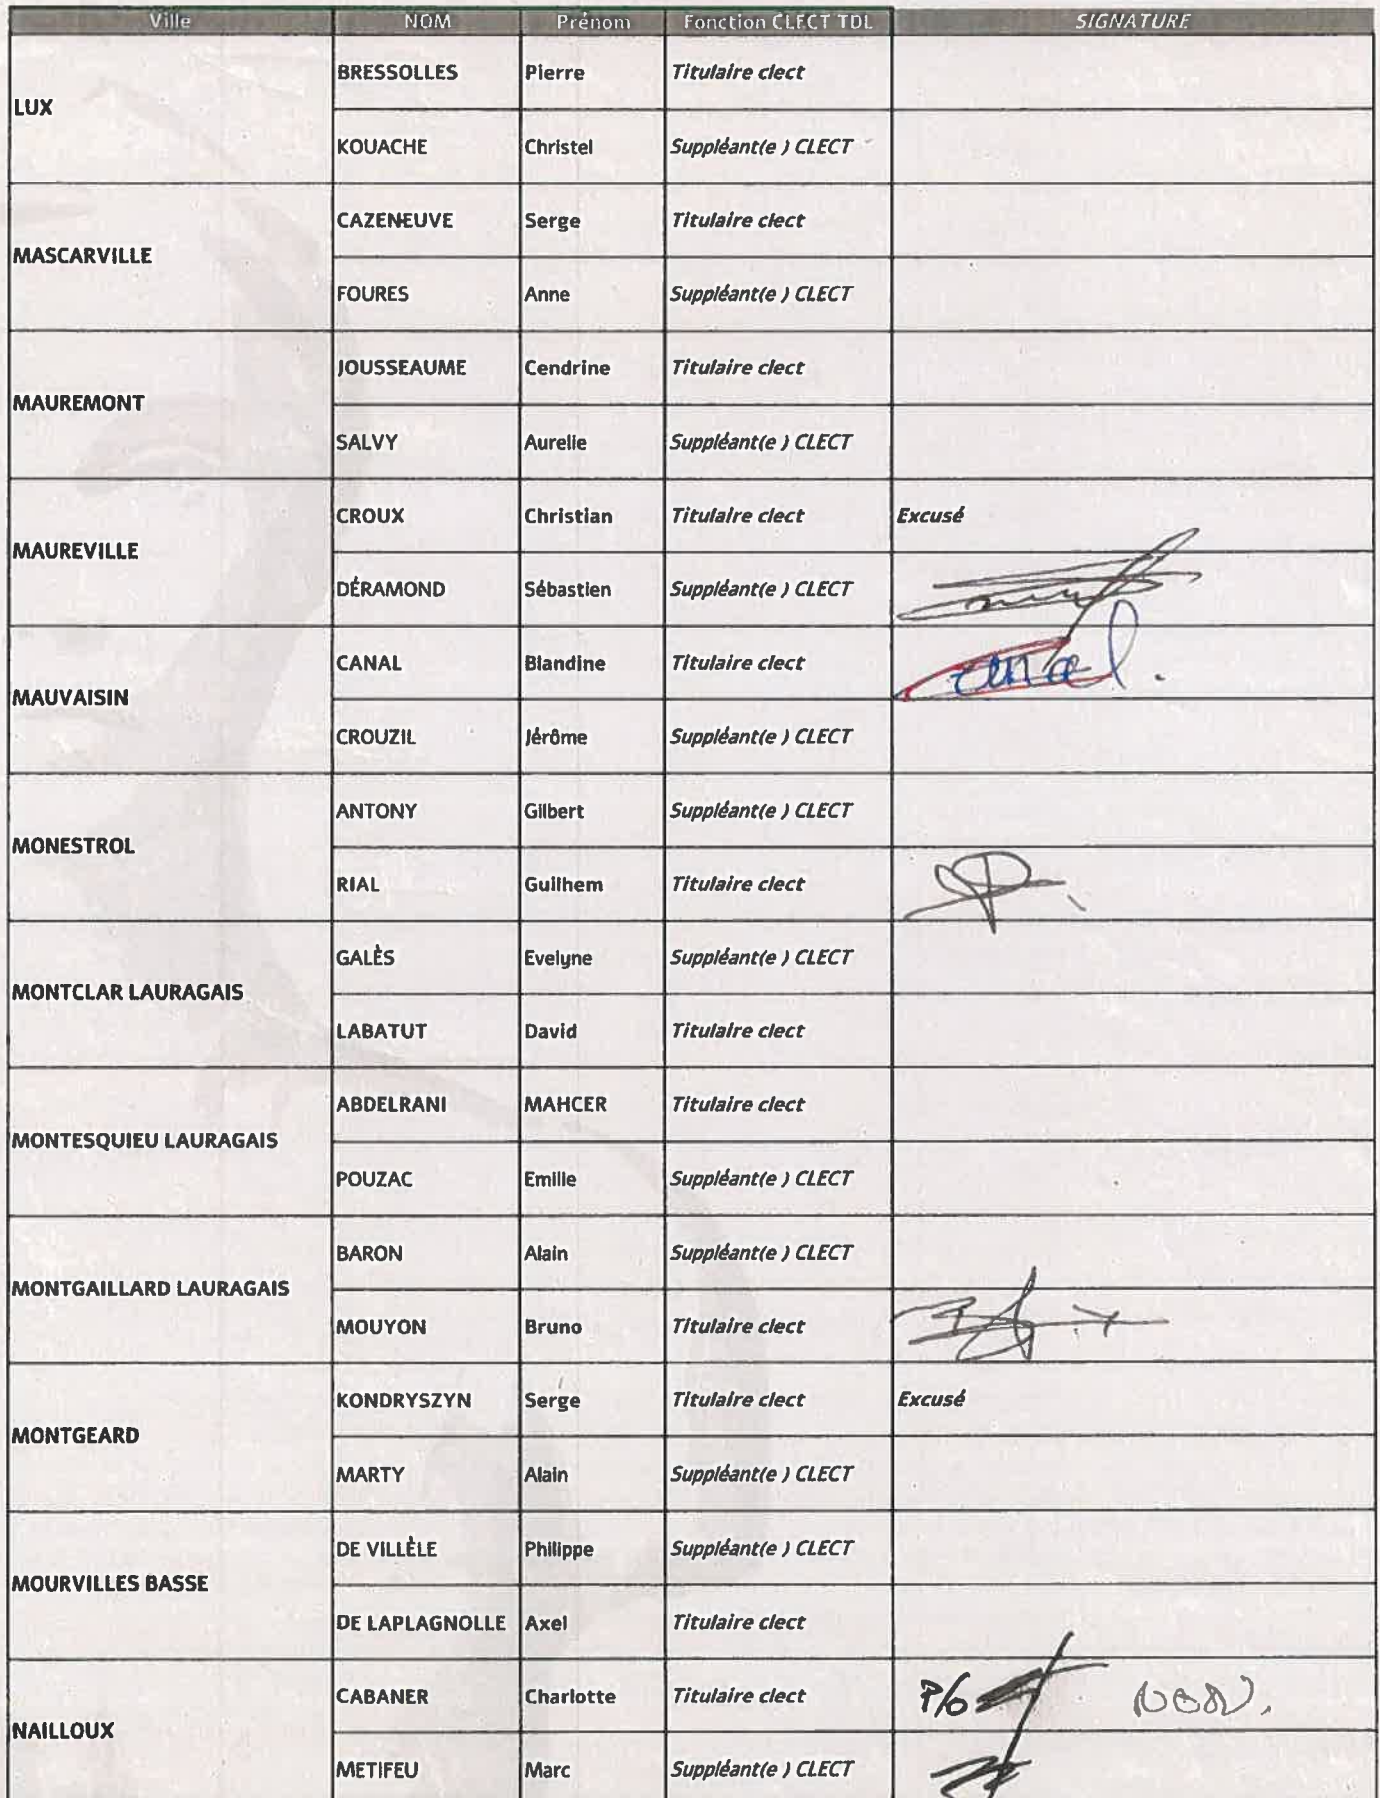 Ville NOM Prénom Fonction CLECT TDL SIGNATURE
LUX
BRESSOLLES Pierre Titulaire clect
KOUACHE Christel Suppléant(e ) CLECT
MASCARVILLE
CAZENEUVE Serge Titulaire clect
FOURES Anne Suppléant(e ) CLECT
MAUREMONT
JOUSSEAUME Cendrine Titulaire clect
SALVY Aurelie Suppléant(e ) CLECT
MAUREVILLE
CROUX Christian Titulaire clect Excusé
DÉRAMOND Sébastien Suppléant(e ) CLECT
MAUVAISIN
CANAL Blandine Titulaire clect
CROUZIL Jérôme Suppléant(e ) CLECT
MONESTROL
ANTONY Gilbert Suppléant(e ) CLECT
RIAL Guilhem Titulaire clect
MONTCLAR LAURAGAIS
GALÈS Evelyne Suppléant(e ) CLECT
LABATUT David Titulaire clect
MONTESQUIEU LAURAGAIS
ABDELRANI MAHCER Titulaire clect
POUZAC Emilie Suppléant(e ) CLECT
MONTGAILLARD LAURAGAIS
BARON Alain Suppléant(e ) CLECT
MOUYON Bruno Titulaire clect
MONTGEARD
KONDRYSZYN Serge Titulaire clect Excusé
MARTY Alain Suppléant(e ) CLECT
MOURVILLES BASSE
DE VILLÈLE Philippe Suppléant(e ) CLECT
DE LAPLAGNOLLE Axel Titulaire clect
NAILLOUX
CABANER Charlotte Titulaire clect P/o NON.
METIFEU Marc Suppléant(e ) CLECT